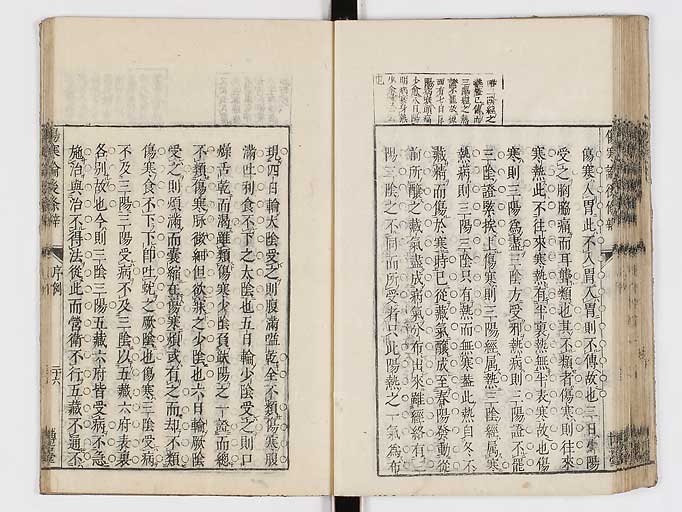 傷寒入胃此不入胃入胃則不傳故也三日少陽
受之胸脇痛而耳聾類也其不類者傷寒則往來
寒熱此不往來寒熱有半裏熱無半表寒故也傷
寒則三陽為盡三陰方受邪熱病則三陽證不罷
三陰證緊挨上傷寒則三陽經屬熱三陰經屬寒
熱病則三陽三陰只有熱而無寒蓋此熱自冬不
藏精而傷於寒時已從藏氣釀成至春陽發動從
前所釀之藏氣盡成病氣分布出來雖經絡有三
陽三陰之不同而所受者只此陽熱之一氣為布
現四日輪太陰受之則腹滿嗌乾全不類傷寒腹
滿吐利食不下之太陰也五日輪少陰受之則口
燥舌乾而渴雖類傷寒少陰負趺陽之一證而總
不類傷寒脉微細但欲寐之少陰也六日輪厥陰
受之則煩滿而囊縮在傷寒煩或有之而却不類
傷寒食不下下即吐蚘之厥陰也傷寒三陰受病
不及三陽三陽受病不及三陰以五藏六府表裏
各別故也今則三陰三陽五藏六府皆受病不急
施治與治不得法從此而營衛不行五藏不通不
傷寒論後條辨
序例
二十六